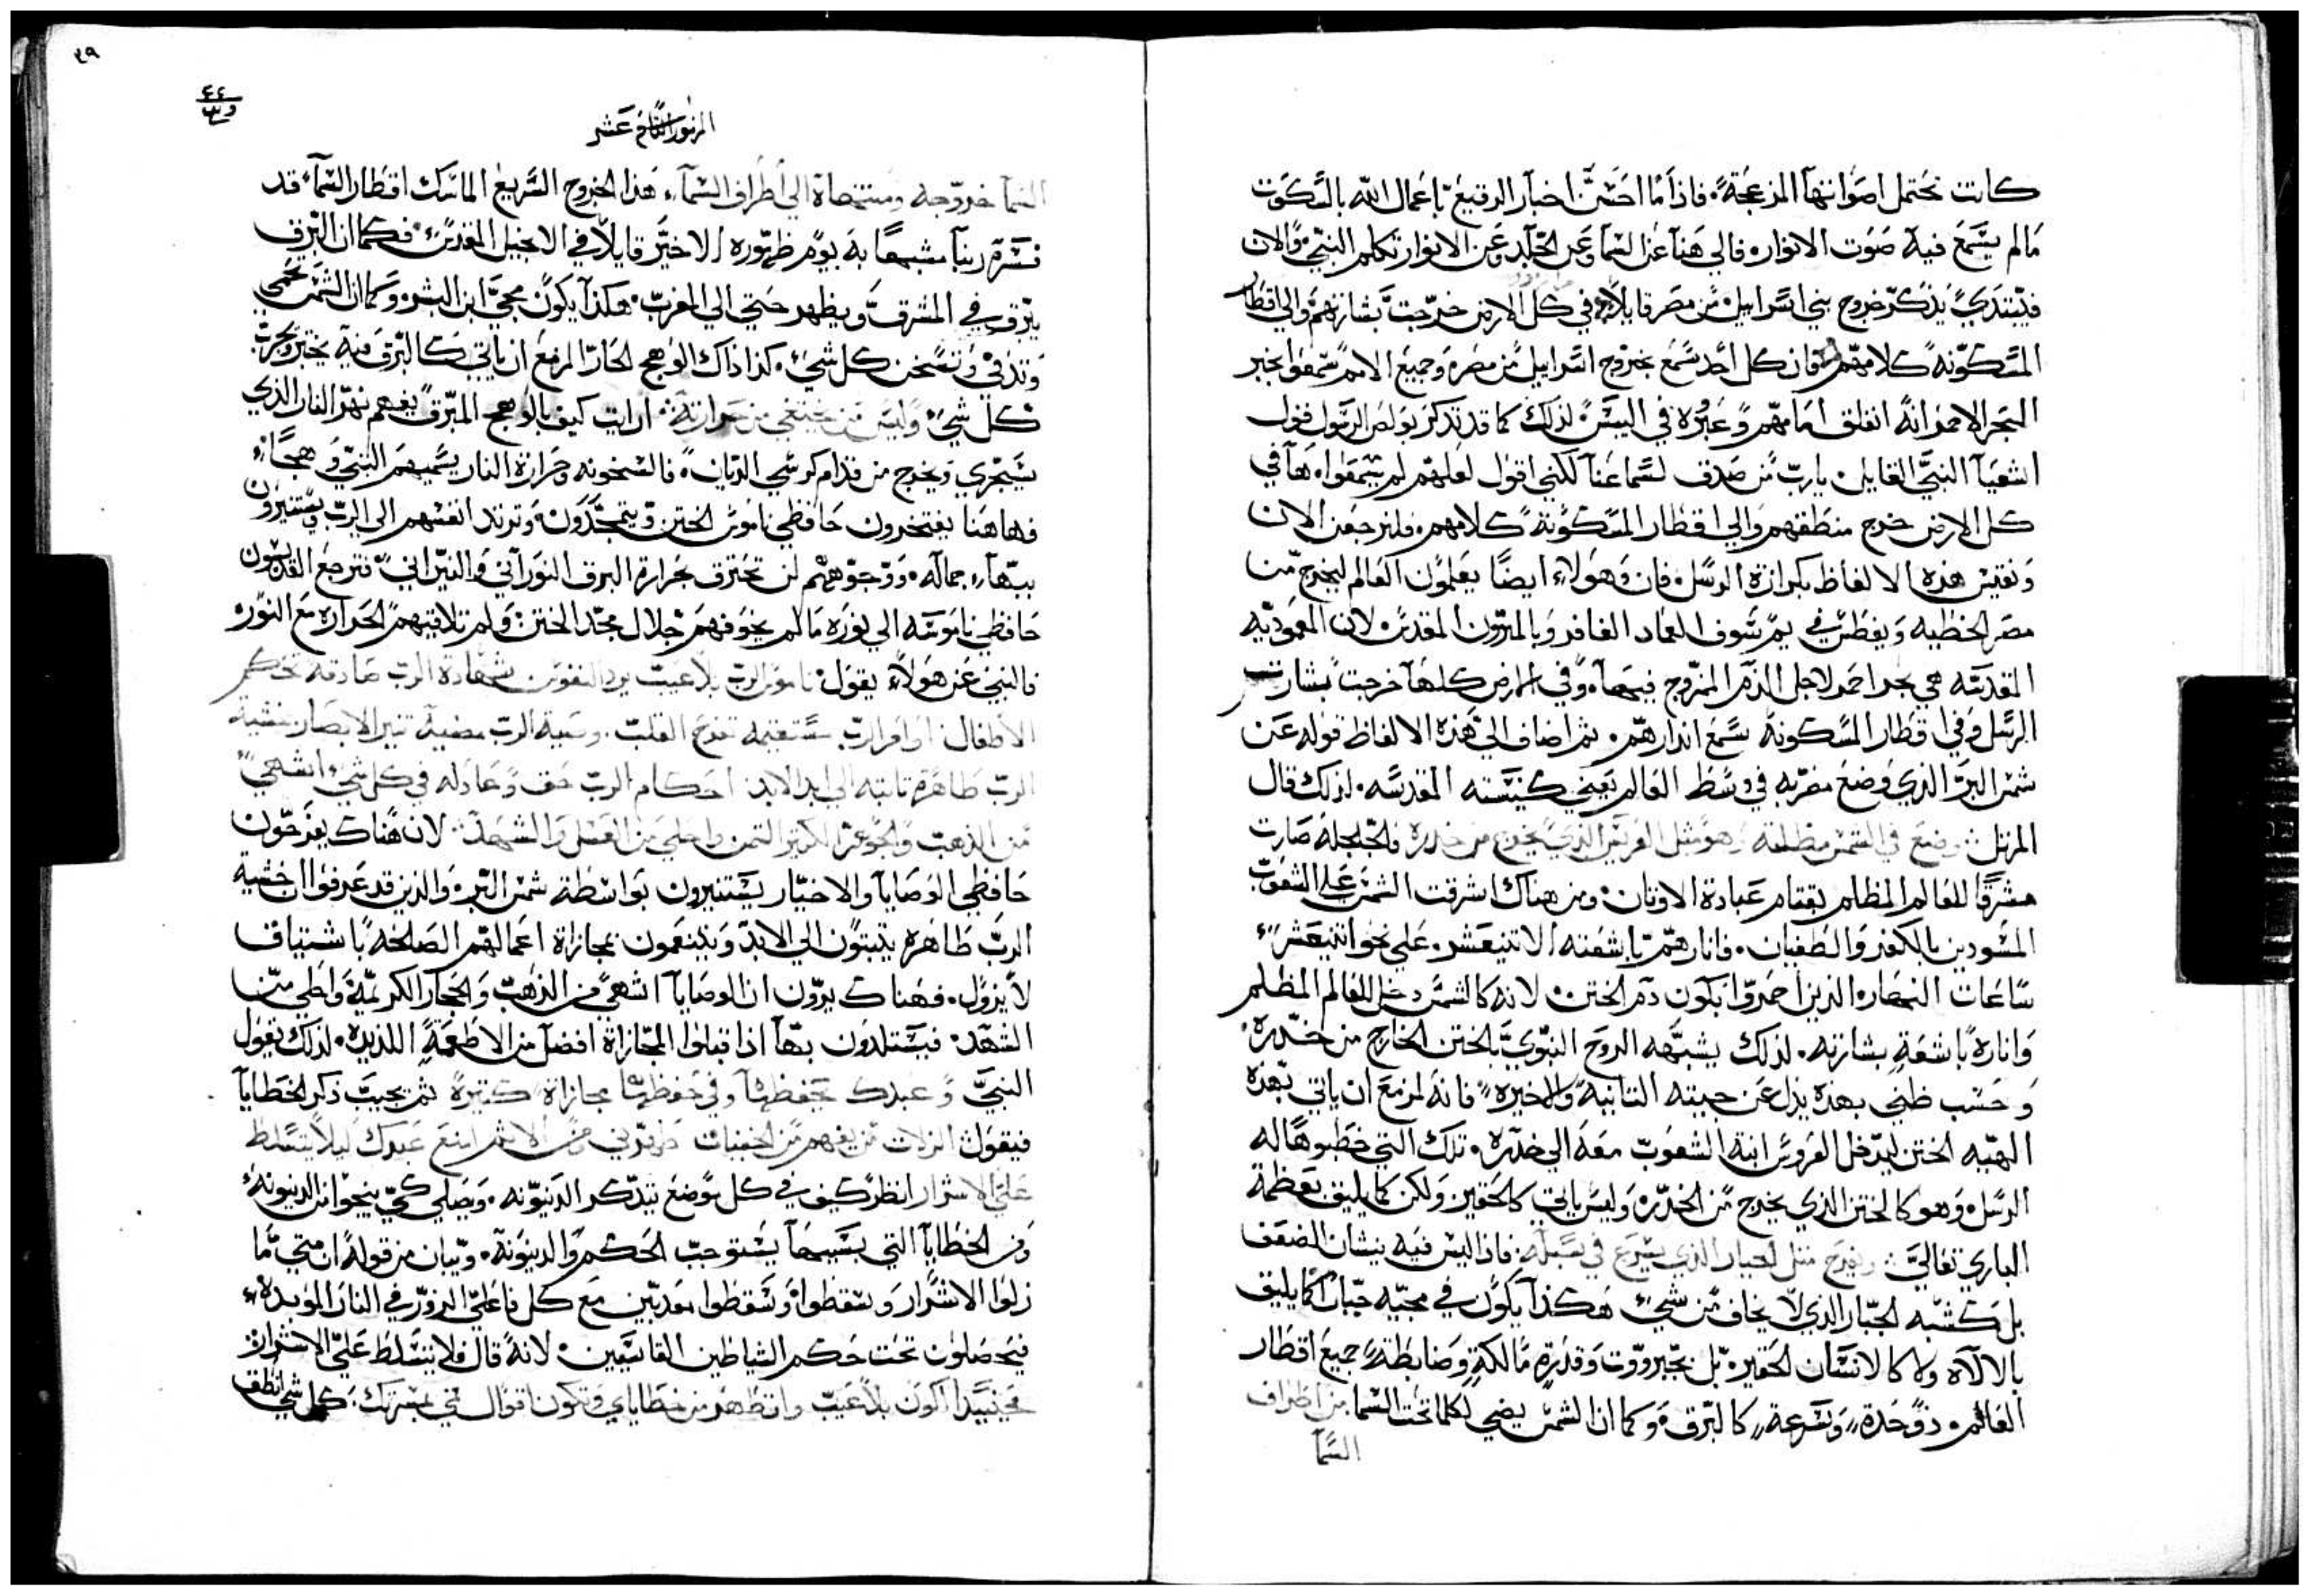 كانت تحتمل اصواتها المزعجة. فاذا ما احسن اخبار الرقيع باعمال الله بالسكوت
مالم يسمع فيه صوت الانوار. فالي هنا عن السما وعن الجلد وعن الانوار تكلم النبي. والان
فيبتدي يذكر خروج بني اسراييل من مصر قايلاً في كل الارض خرجت بشارتهم والي اقطار
المسكونه كلامهم فان كل احد سمع بخروج اسراييل من مصر وجميع الامم سمعوا بخبر
البحر الاحمر انه انفلق امامهم وعبره في اليبس. لذلك كما قد تذكر بولص الرسول قول
اشعيا النبي القايل. يارب من صدق لسماعنا لكني اقول لعلهم لم يسمعوا. ها في
كل الارض خرج منطقهم والي اقطار المسكونة كلامهم. فلنرجعن الان
ونقيس هذه الالفاظ بكرازة الرسل. فان وهولاء ايضا يعلمون العالم ليخرج من
مصر الخطيه ويغطس في يم سوف العماد الغافر وبالميرون المقدس. لان المعموديه
المقدسه هي بحر احمر لاجل الدم الممزوج فيها. وفي الارض كلها خرجت بشارت
الرسل وفي اقطار المسكونة سمع اندارهم. ثم اضاف الي هذه الالفاظ قوله عن
شمس البر الذي وضع مضربه في وسط العالم يعني كنيسته المقدسه. لذلك قال
المرتل وضع في الشمس مظلته وهو مثل العريس الذي يخرج من خدره والجلجله صارت
مشرقا للعالم المظلم بقتام عبادة الاوثان. ومن هناك اشرقت الشمس علي الشعوب
المسودين بالكفر والطغيان. فانارهم باشعته الاتنيعشر. علي نحو اتنيعشر
ساعات النهار الذين احمروا بكون دم الختن. لانه كالشمس دخل للعالم المظلم
وانارة باشعة بشارته. لذلك يشبهه الروح النبوي بالختن الخارج من خدره.
وحسب ظني بهذه يدل عن جيته التانية والاخيره. فانه لمزمع ان ياتي بهذه
الهيه الختن ليدخل العروس ابنة الشعوب معه الي خدره. تلك التي خطبوها له
الرسل. وهو كالختن الذي يخرج من الخدر. وليس ياتي كالحقير ولكن كما يليق بعظمة
الباري تعالي: ويفرح متل الجبار الذي يسرع في سبله. فاذا ليس فيه بنشان الضعف
بل كشبه الجبار الذي لا يخاف من شي هكذا يكون في مجيه جبار كما يليق
بالالاه ولا كالانسان الحقير. بل بجبرووت وقدرة مالكة وضابطة جميع اقطار
العالم. ذو حدة وسرعة كالبرق. وكما ان الشمس يضي لكلما تحت السما من اطراف
السما
٣٩
الزبور التامن عشر
السما خروجه ومنتهاه الي اطراف السما. هذا الخروج السريع الماسك اقطار السما قد
فسره ربنا مشبها به يوم ظهوره الاخير قايلاً في الانجيل المقدس. فكما ان البرق
يبرق في المشرق ويظهر حتي الي المغرب. هكذا يكون مجي ابن البشر. وكما ان الشمس تحمي
وتدفي وتسخن كل شي. كذا ذاك الوهج الحار المزمع ان ياتي كالبرق فيه يختبر ويجرب
كل شي وليس من يختفي من حرارته: ارايت كيف بالوهج المبرق يفهم نهر النار الذي
يستجري ويخرج من قدام كرسي الديان. فالسخونه وحرارة النار يسميهم النبي وهجا.
فهاهنا يفتخرون حافظي ناموس الختن ويتمجدون وترتد انفسهم الي الرب ويستنيرون
ببهاء جماله. ووجوههم لن تحترق بحرارة البرق النوراني والنيراني. فترجع القديسون
حافظي ناموسه الي نوره مالم يخوفهم جلال مجد الختن. ولم تلاقيهم الحراره مع النور.
فالنبي عن هولاء يقول. ناموس الرب بلا عيب يرد النفوس شهادة الرب صادقه تحكم
الاطفال اوامر الرب مستقيمه تفرح القلب. وصية الرب مضية تنير الابصار خشية
الرب طاهرة تابته الي ابد الابد احكام الرب حق وعادله في كل شي اشهي
من الذهب والجوهر الكتير التمن واحلي من العسل والشهد: لان هناك يفرحون
حافظي الوصايا والاخيار يستنيرون بواسطة شمس البر. والذين قد عرفوا ان خشية
الرب طاهرة يتبتون الي الابد ويتنعمون بمجازاة اعمالهم الصالحه باشتياف
لا يزول. فهناك يرون ان الوصايا اشهي من الذهب والحجار الكريمة واطلي من
الشهد. فيستلدون بها اذا قبلوا المجازاة افضل من الاطعمة اللذيذه. لذلك يقول
النبي وعبدك يحفظها وفي حفظها مجازاة كتيرة ثم يجيب ذكر الخطايا
فيقول الزلات من يفهم من الخفيات طهرني ومن الاتم امنع عبدك ليلا يتسلط
علي الاشرار انظر كيف في كل موضع يتذكر الدينونه. ويصلي كي ينجوا من الدينونة
ومن الخطايا التي بسببها يستوجب الحكم والدينونة. ويبان من قوله ان متي ما
زلوا الاشرار وسقطوا وسقطوا معدبين مع كل فاعلي الزور في النار الموبده
فيحصلون تحت حكم الشياطين القاسيين. لانه قال فلا يتسلط علي الاشرار
فحينيذا اكون بلا عيب واتطهر من خطاياي وتكون اقوال فمي بمسرتك. كل شي نطق